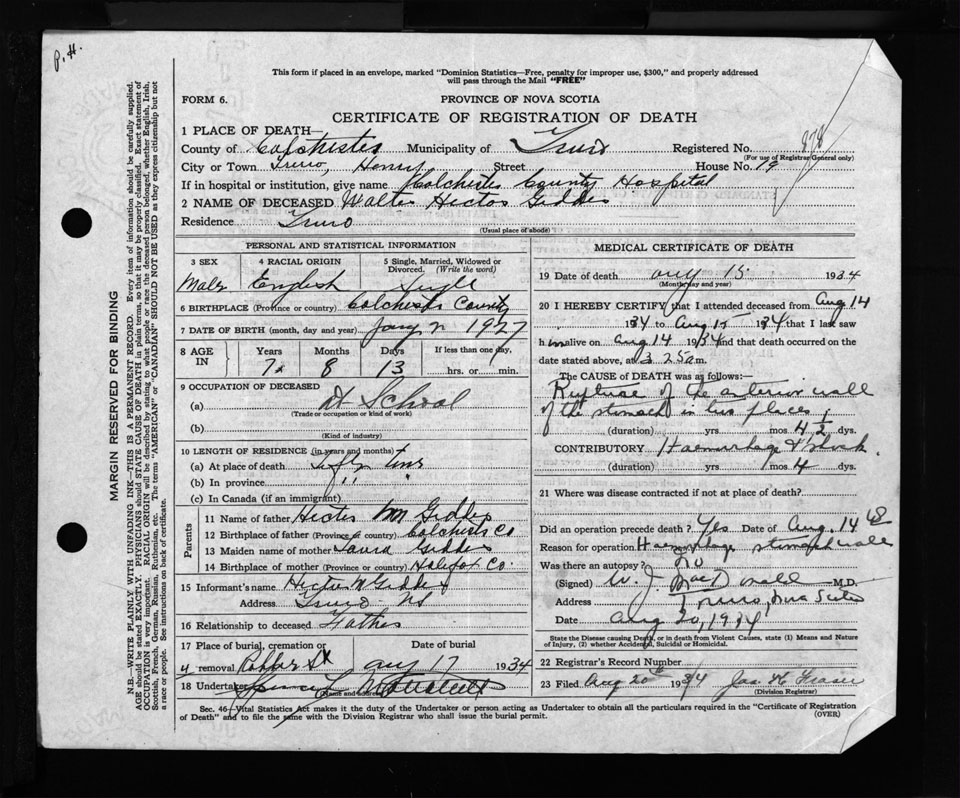 P. H.
This form if placed in an envelope, marked "Dominion Statistics—Free, penalty for improper use, $300," and properly addressed
will pass through the Mail "FREE"
FORM 6.
PROVINCE OF NOVA SCOTIA
CERTIFICATE OF REGISTRATION OF DEATH
1 PLACE OF DEATH—
County of Colchester Municipality of Truro Registered No.
(For use of Registrar General only)
City or Town Truro, Street House No. 19
If in hospital or institution, give name Colchester County Hospital
2 NAME OF DECEASED Walter Hector Geddes
Residence Truro
(Usual place of abode)
PERSONAL AND STATISTICAL INFORMATION
3 SEX
Male
4 RACIAL ORIGIN
English
5 Single, Married, Widowed or
Divorced. (Write the word)
Single
6 BIRTHPLACE (Province or country) Colchester County
7 DATE OF BIRTH (month, day and year) Jany 2 1927
8 AGE
IN
Years Months Days If less than one day,
7 8 13 hrs. or min.
9 OCCUPATION OF DECEASED
(a) At School
(Trade or occupation or kind of work)
(b)
(Kind of industry)
10 LENGTH OF RESIDENCE (in years and months)
(a) At place of death
(b) In province " "
(c) In Canada (if an immigrant)
Parents
11 Name of father Hector M Geddes
12 Birthplace of father (Province or country) Colchester Co
13 Maiden name of mother Laura Geddes
14 Birthplace of mother (Province or country) Halifax Co.
15 Informant's name Hector M Geddes
Address Truro NS
16 Relationship to deceased Father
17 Place of burial, cremation or Date of burial
removal Aug 17 1934
18 Undertaker
(Name and address)
MEDICAL CERTIFICATE OF DEATH
19 Date of death Aug 15 1934
(Month, day and year)
20 I HEREBY CERTIFY that I attended deceased from Aug 14
1934 to Aug 15 1934 that I last saw
him alive on Aug 14 1934 and that death occurred on the
date stated above, at 3 25 a m.
The CAUSE OF DEATH was as follows:—
Rupture of the anterior wall
of the stomach in two places
(duration) yrs mos 4½ dys.
CONTRIBUTORY Haemorrhage & Shock
(duration) yrs mos 4 dys.
21 Where was disease contracted if not at place of death?
Did an operation precede death? Yes Date of Aug. 14
Reason for operation Haemorrhage stomach wall
Was there an autopsy? No
(Signed) W. J. MacDonald M.D.
Address Truro, Nova Scotia
Date Aug 20, 1934
State the Disease causing Death, or in death from Violent Causes, state (1) Means and Nature
of Injury, (2) whether Accidental, Suicidal or Homicidal.
22 Registrar's Record Number
23 Filed Aug 20th 1934 Jas. H Fraser
(Division Registrar)
Sec. 46—Vital Statistics Act makes it the duty of the Undertaker or person acting as Undertaker to obtain all the particulars required in the "Certificate of Registration
of Death" and to file the same with the Division Registrar who shall issue the burial permit.
(OVER)
MARGIN RESERVED FOR BINDING
N.B.—WRITE PLAINLY WITH UNFADING INK—THIS IS A PERMANENT RECORD. Every item of information should be carefully supplied.
AGE should be stated EXACTLY. PHYSICIANS should STATE CAUSE OF DEATH in plain terms, so that it may be properly classified. Exact statement of
OCCUPATION is very important. RACIAL ORIGIN will be described by stating to what people or race the deceased person belonged, whether English, Irish,
Scottish, French, German, Russian, Ruthenian, etc. The terms "AMERICAN" or "CANADIAN" SHOULD NOT BE USED as they express citizenship but not
a race or people. See instructions on back of certificate.